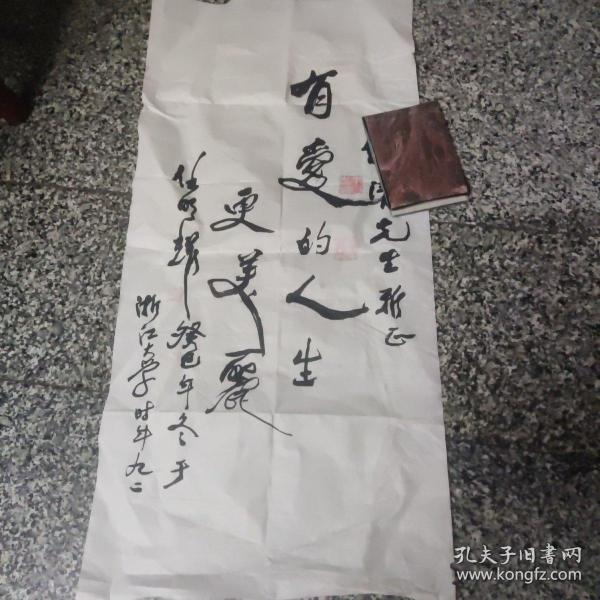 先生雅正
有愛的人生
更美麗
任明耀 癸巳年冬于
浙江大学时年九二
孔夫子旧書网
www.kongfz.com